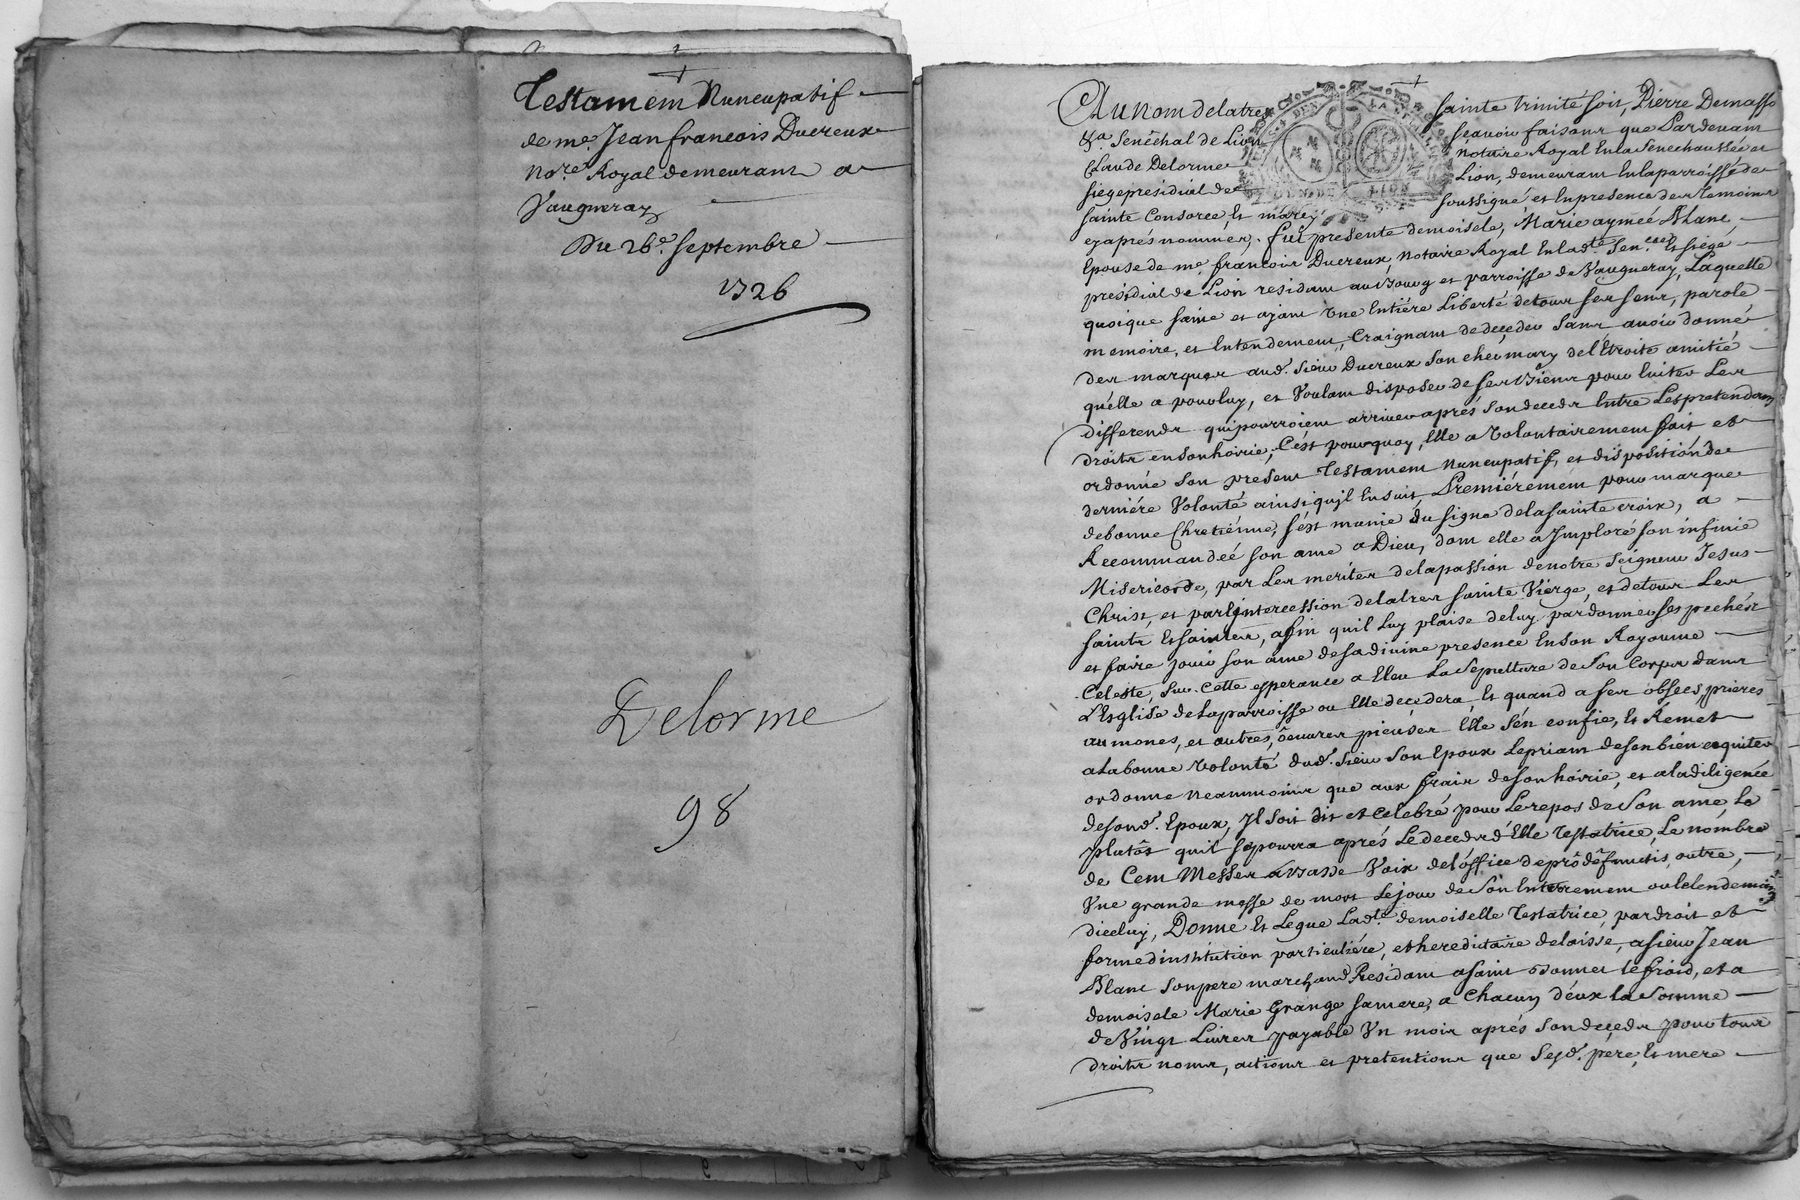 Testament Nuncupatif
de me. Jean francois Ducreux
Nore. Royal demeurant a
Vaugneray
Du 26e. Septembre
1726
Delorme
98
Au Nom de la tres sainte trinité soit, Pierre Demasso
&a. Senéchal de Lion scavoir faisons que Pardevant
Claude Delorme notaire Royal En la Senechaussée et
siege presidial de Lion, demeurant En la parroisse de
sainte Consorce Et marcy soussigné et En presence des temoins
cy aprés nommés, fut presente demoisele, Marie aymeé Blanc
Epouse de me. francois Ducreux, Notaire Royal En lad.te Sen.cee Et siege
presidial de Lion residant au Bourg et parroisse de Vaugneray, Laquelle
quoique saine et ayant Une Entiére Liberté de tous ses sens, parole
memoire, et Entendement, Craignant de deçeder sans avoir donné
des marques aud. Sieur Ducreux son cher mary de l'Etroite amitié
qu'elle a pour luy, et Voulant disposer de ses Biens pour Eviter Les
differends qui pourroient arriver aprés son decedz Entre Les pretendants
droits en son hoirie, C'est pourquoy, Elle a Volontairement fait et
ordonné son present Testament Nuncupatif, et disposition de
derniére Volonté ainsi qu'jl Ensuit, Premiérement pour marque
de bonne Chretiénne, s'est munie du signe de la sainte croix, a
Recommandeé son ame a Dieu, dont elle a Jmploré son infinie
Misericorde, par Les merites de la passion de notre Seigneur Jesus
Christ, et par l'intercession de la tres sainte Vierge, et de tous Les
saints Et saintes, afin qu'il Luy plaise de luy pardonner ses pechés
et faire jouir son ame de sa divine presence En son Royaume
Celeste, sur Cette esperance a Eleu La Sepulture de Son Corps dans
L'Esglise de la parroisse ou Elle decedera, Et quand a ses obseqs, prieres
aumones, et autres, oeuvres pieuses Elle s'en confie, Et Remet
a La bonne Volonté dud. Sieur Son Epoux Le priant de s'en bien acquiter
ordonne neammoins que aux frais de son hoirie, et a la diligence
de sond. Epoux, Jl soit dit et Celebré pour Le repos de Son ame, Le
plutôt qu'il se pourra aprés Le decedz d'Elle Testatrice, Le nombre
de Cent Messes a Basse Voix de l'office de prô defunctis, outre,
Vne grande messe de mort Le jour de Son Enterrement ou le lendemain
d'iceluy, Donne Et Legue Lad.te demoiselle Testatrice, par droit et
forme d'institution particuliére, et hereditaire delaissé, a Sieur Jean
Blanc Son pere marchand Residant a saint Bonnet le froid, et a
demoisele Marie Grange sa mere, a Chacun d'eux la Somme
de Vingt Livres payable Vn mois aprés Son deçedz pour tous
droits noms, actions et pretentions que Sesd. pere, Et mere